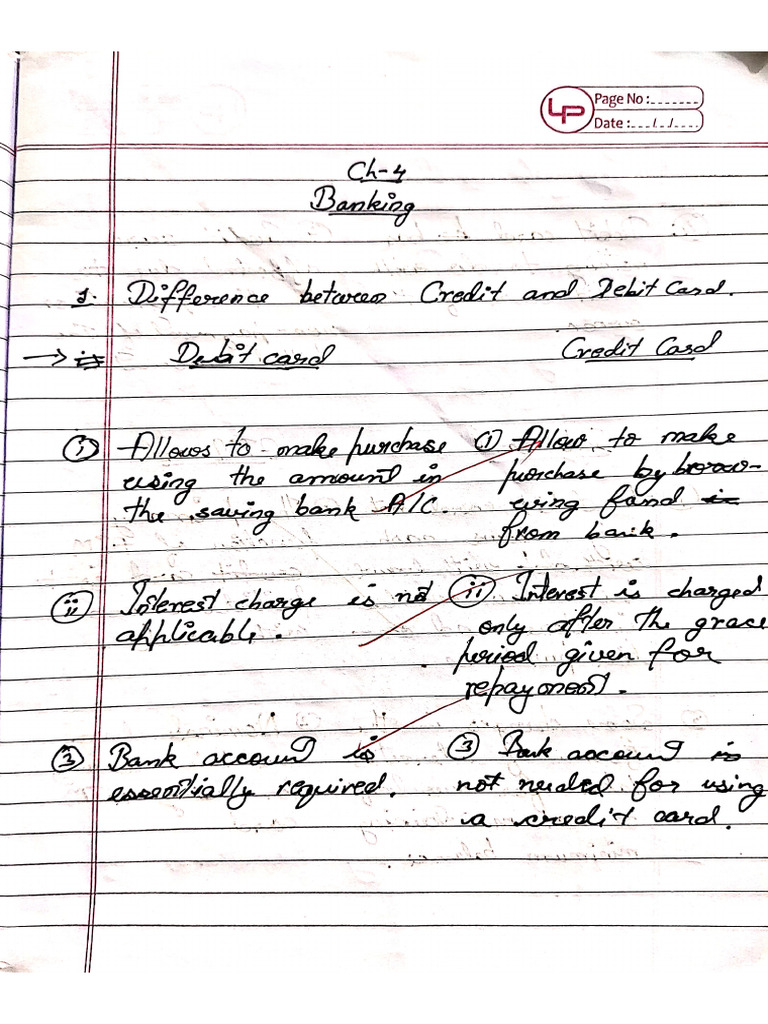 LP
Page No :
Date : / /
Ch-4
Banking
1. Difference between Credit and Debit Card.
→ Debit card Credit Card
(i) Allows to make purchase
using the amount in
the saving bank A/C.
(i) Allow to make
purchase by borrow-
wing fund
from bank.
(ii) Interest charge is not
applicable.
(ii) Interest is charged
only after the grace
period given for
repayment.
(3) Bank account is
essentially required.
(3) Bank account is
not needed for using
a credit card.